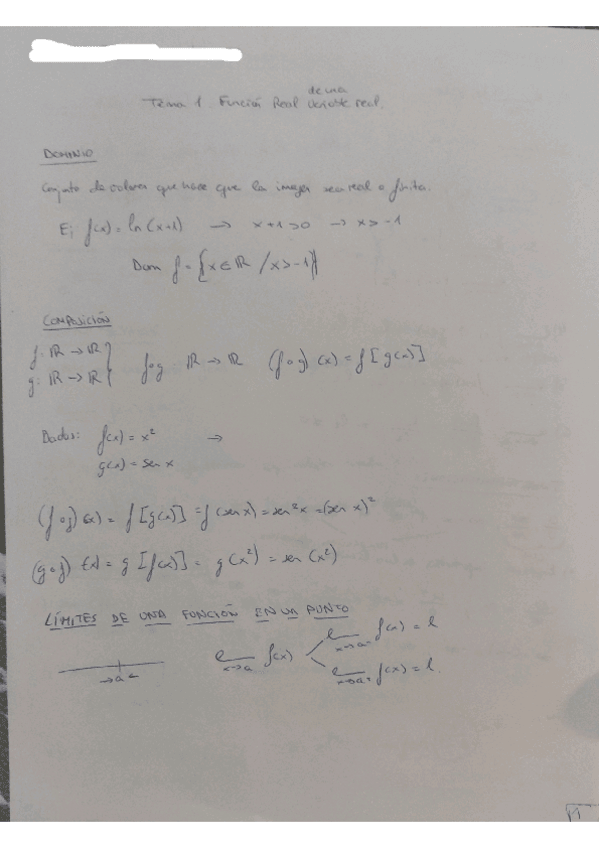 de una
Tema 1. Función Real variable real.
DOMINIO
Conjunto de valores que hace que la imagen sea real o finita.
Ej f(x) = ln(x+1) → x+1>0 → x>-1
Dom f = {x∈ℝ / x>-1}
COMPOSICIÓN
f: ℝ→ℝ
g: ℝ→ℝ } f∘g ℝ→ℝ (f∘g)(x) = f[g(x)]
Dadas: f(x) = x² →
g(x) = sen x
(f∘g)(x) = f[g(x)] = f(sen x) = sen²x = (sen x)²
(g∘f)(x) = g[f(x)] = g(x²) = sen(x²)
LÍMITES DE UNA FUNCIÓN EN UN PUNTO
x→a⁻ f(x) = l
x→a f(x)
→a←
x→a⁺ f(x) = l